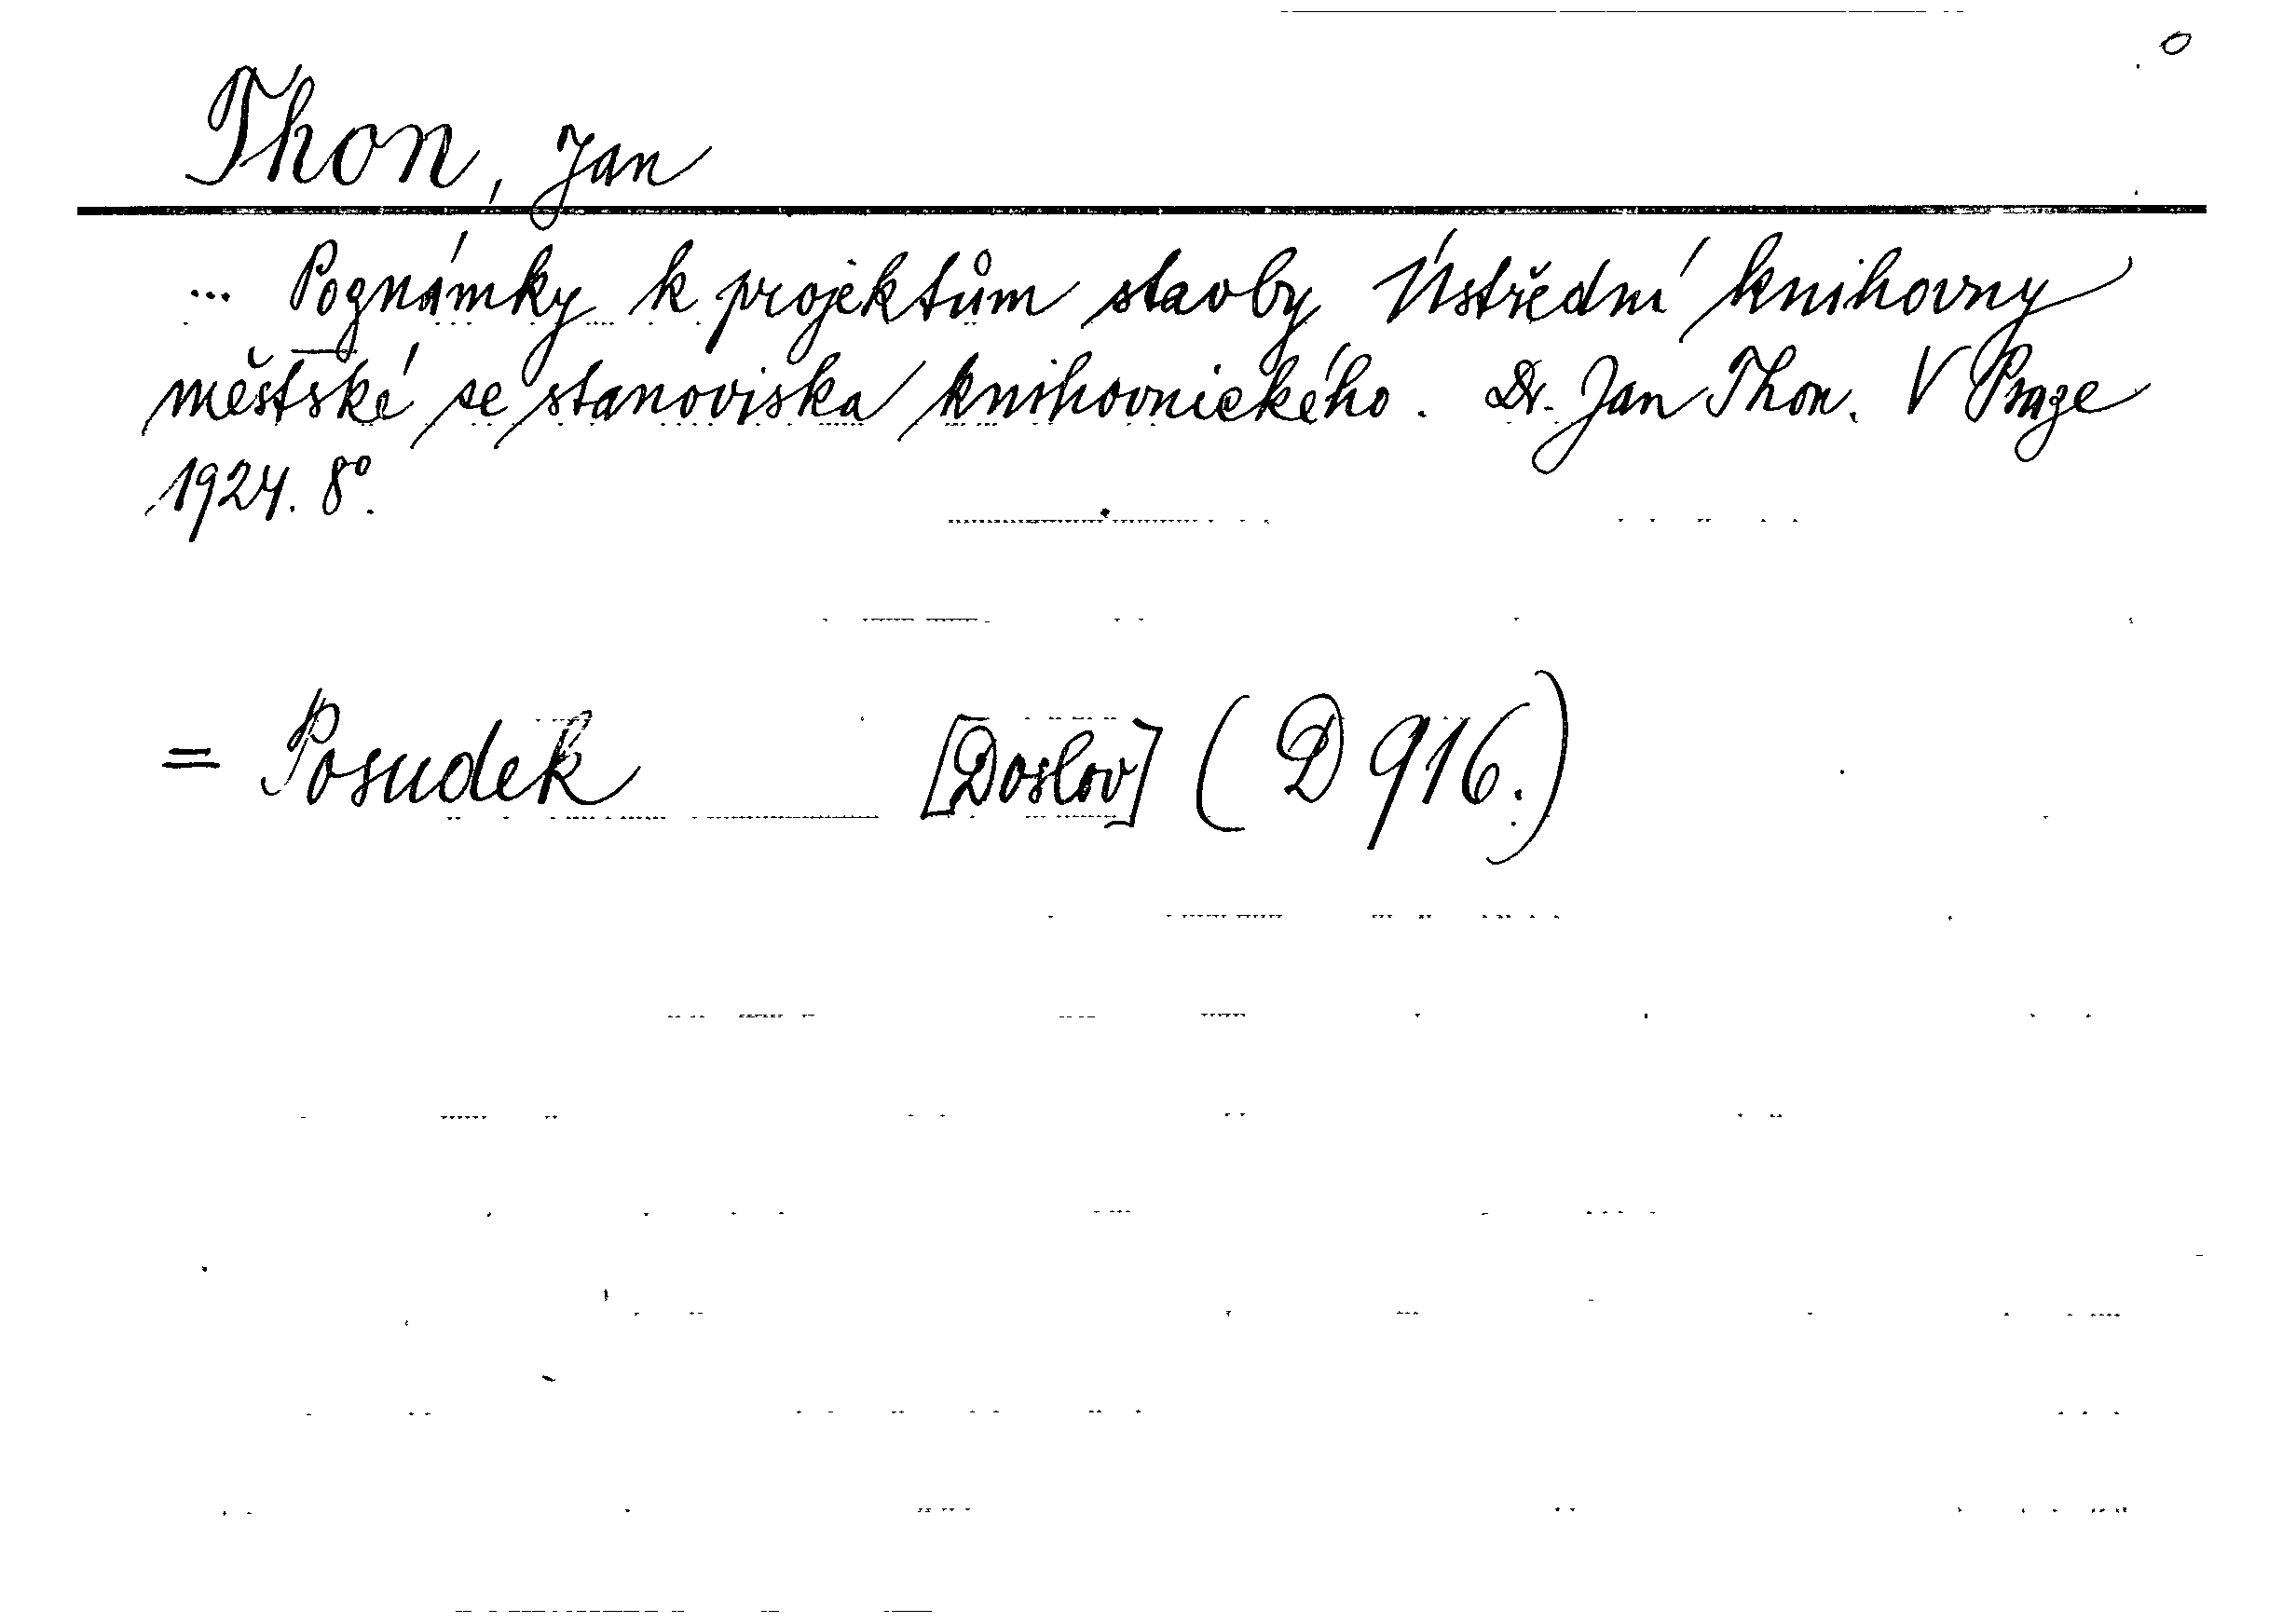 Thon, Jan
... Poznámky k projektům stavby Ústřední knihovny
městské se stanoviska knihovnického. Dr. Jan Thon. V Praze
1924. 8°.
= Posudek [Doslov] (D 916.)